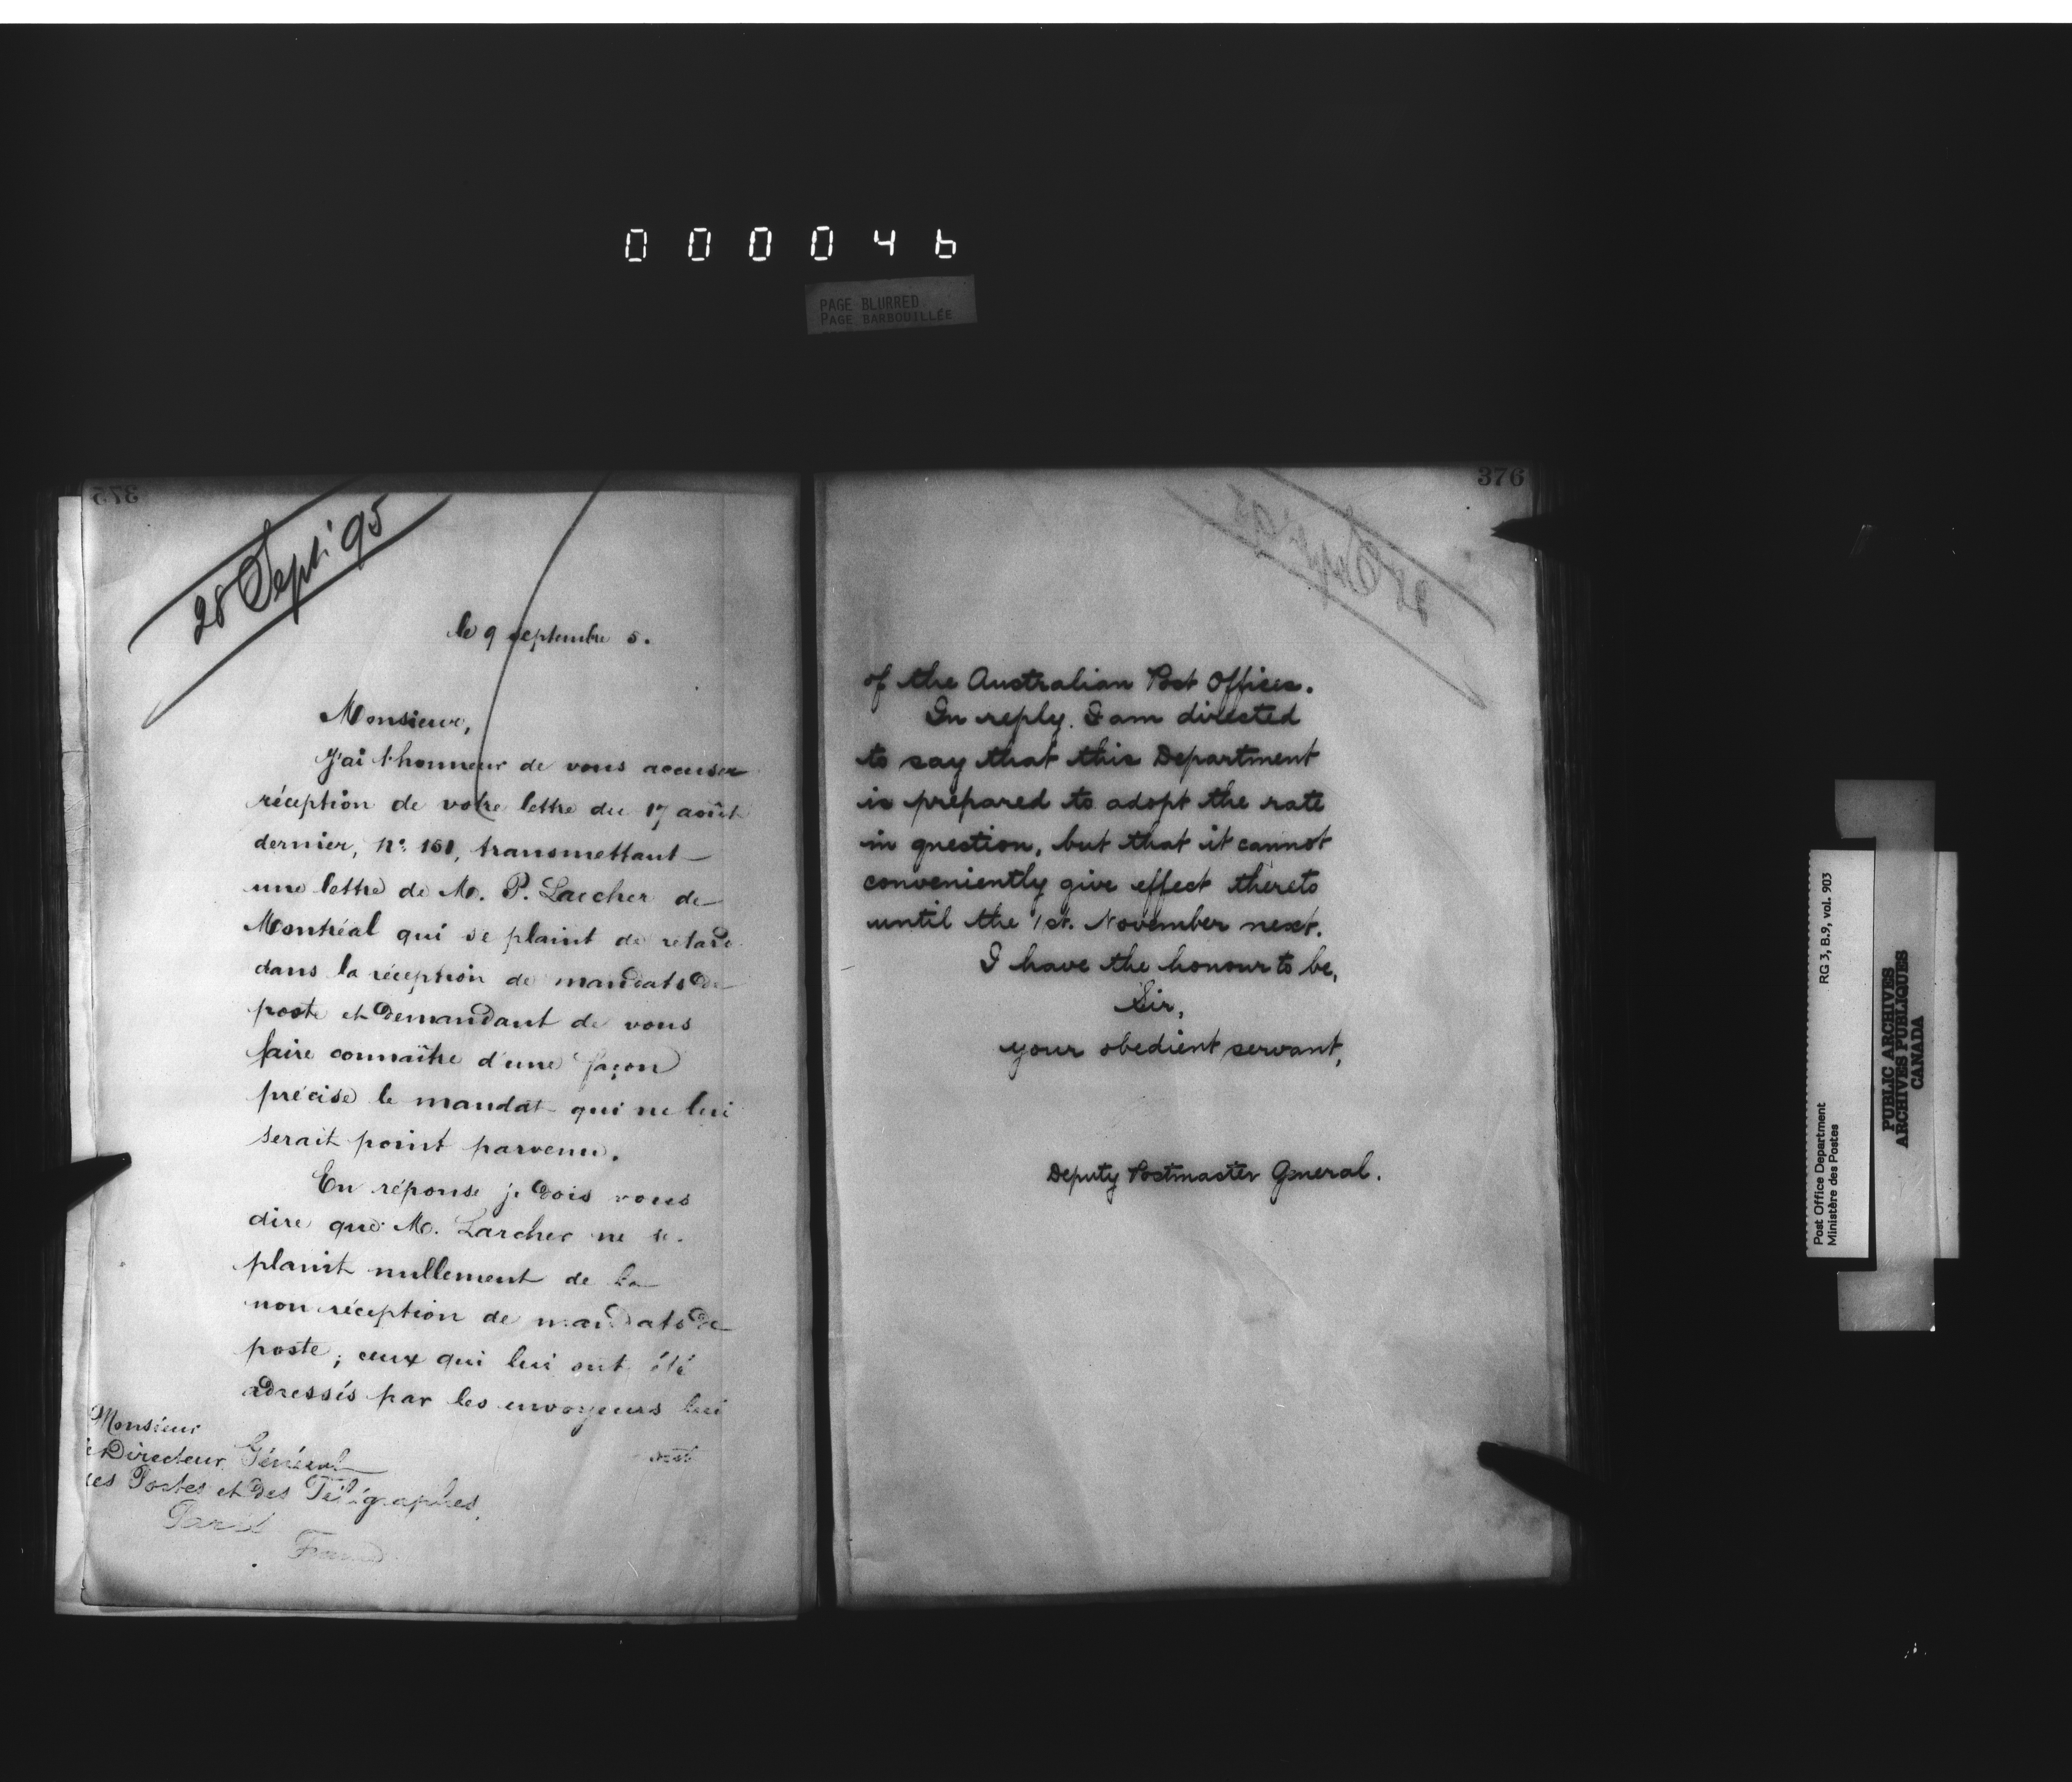 000046
PAGE BLURRED
PAGE BARBOUILLÉE
375
28 Sept. 95
le 9 septembre 5.
Monsieur,
J'ai l'honneur de vous accuser
réception de votre lettre du 17 août
dernier, No. 151, transmettant
une lettre de M. P. Larcher de
Montréal qui se plaint de retard
dans la réception de mandats de
poste et demandant de vous
faire connaître d'une façon
précise le mandat qui ne lui
serait point parvenu.
En réponse je dois vous
dire que M. Larcher ne se
plaint nullement de la
non réception de mandats de
poste; ceux qui lui ont été
adressés par les envoyeurs lui
Monsieur
le Directeur Général
des Postes et des Télégraphes,
Paris
France
376
of the Australian Post Offices.
In reply. I am directed
to say that this Department
is prepared to adopt the rate
in question, but that it cannot
conveniently give effect thereto
until the 1st. November next.
I have the honour to be,
Sir,
your obedient servant,
Deputy Postmaster General.
Post Office Department
Ministère des Postes
RG 3, B.9, vol. 903
PUBLIC ARCHIVES
ARCHIVES PUBLIQUES
CANADA